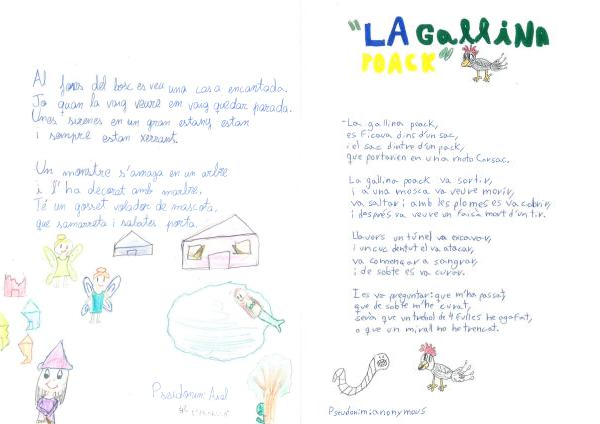 Al fons del bosc es veu una casa encantada.
Jo quan la vaig veure em vaig quedar parada.
Unes sirenes en un gran estany estan
i sempre estan xerrant.
Un monstre s'amaga en un arbre
i l'ha decorat amb marbre.
Té un gosset volador de mascota,
que samarreta i sabates porta.
Pseudònim: Axel
"LA GallinA
POACK"
-La gallina poack,
es ficava dins d'un sac,
i el sac dintre d'en pack,
que portaven en una moto Cansac.
La gallina poack va sortir,
i a una mosca va veure morir,
va saltar i amb les plomes es va cobrir,
i després va veure un faisà mort d'un tir.
Llavors un túnel va excavar,
i un cuc dentut el va atacar,
va començar a sangrar,
i de sobte es va curar.
I es va preguntar: que m'ha passat,
que de sobte m'he curat,
serà que un trèbol de 4 fulles he agafat,
o que un mirall no he trencat.
Pseudònim: anonymous